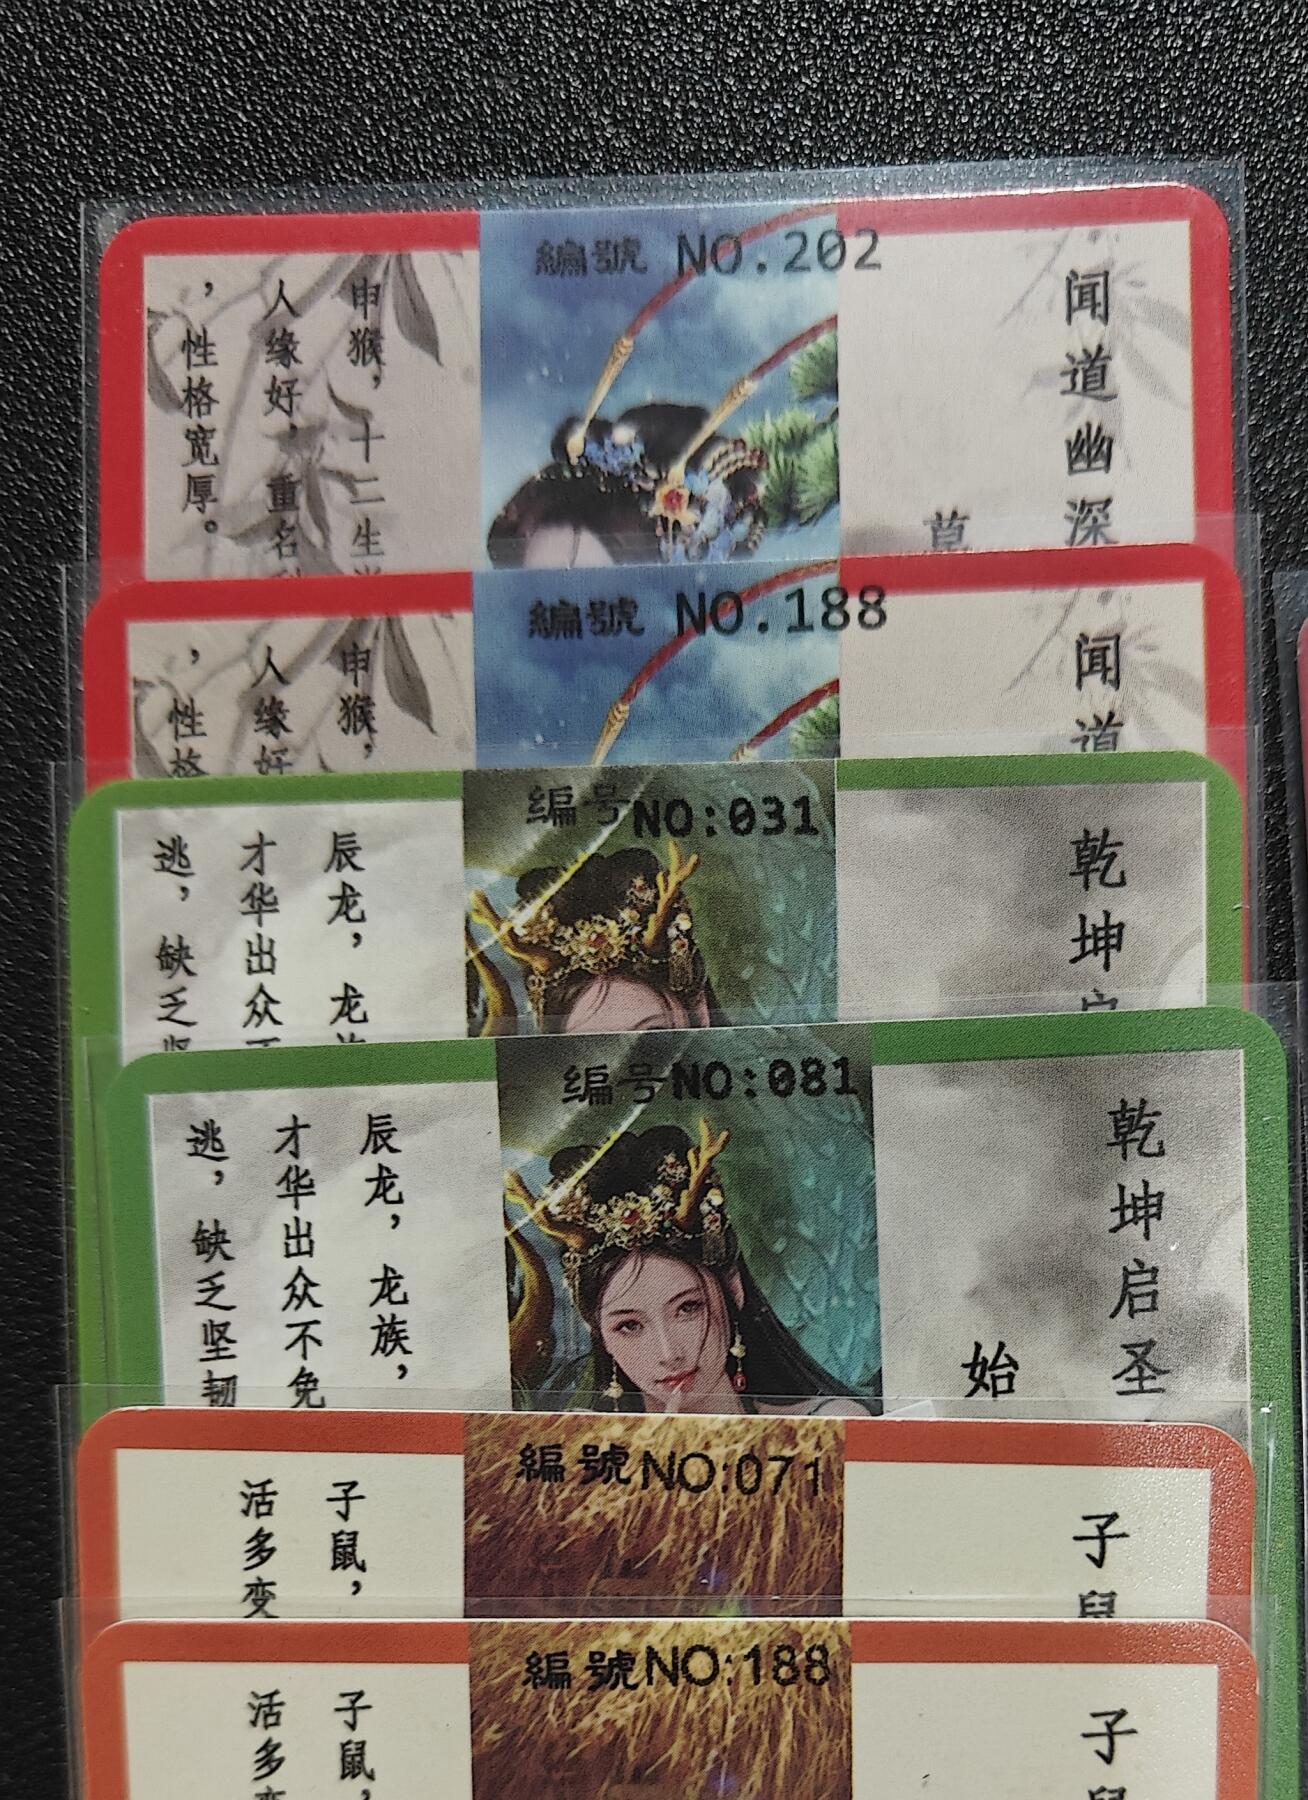 編號 NO.202
闻道幽深
申猴，十二生
人缘好，重名
，性格宽厚。
編號 NO.188
闻道
申猴，
人缘好
，性格
编号NO:031
乾坤
辰龙，龙
才华出众
逃，缺乏
编号NO:081
乾坤启圣
始
辰龙，龙族，
才华出众不免
逃，缺乏坚韧
編號NO:071
子鼠
子鼠，
活多变
編號NO:188
子
子鼠，
活多